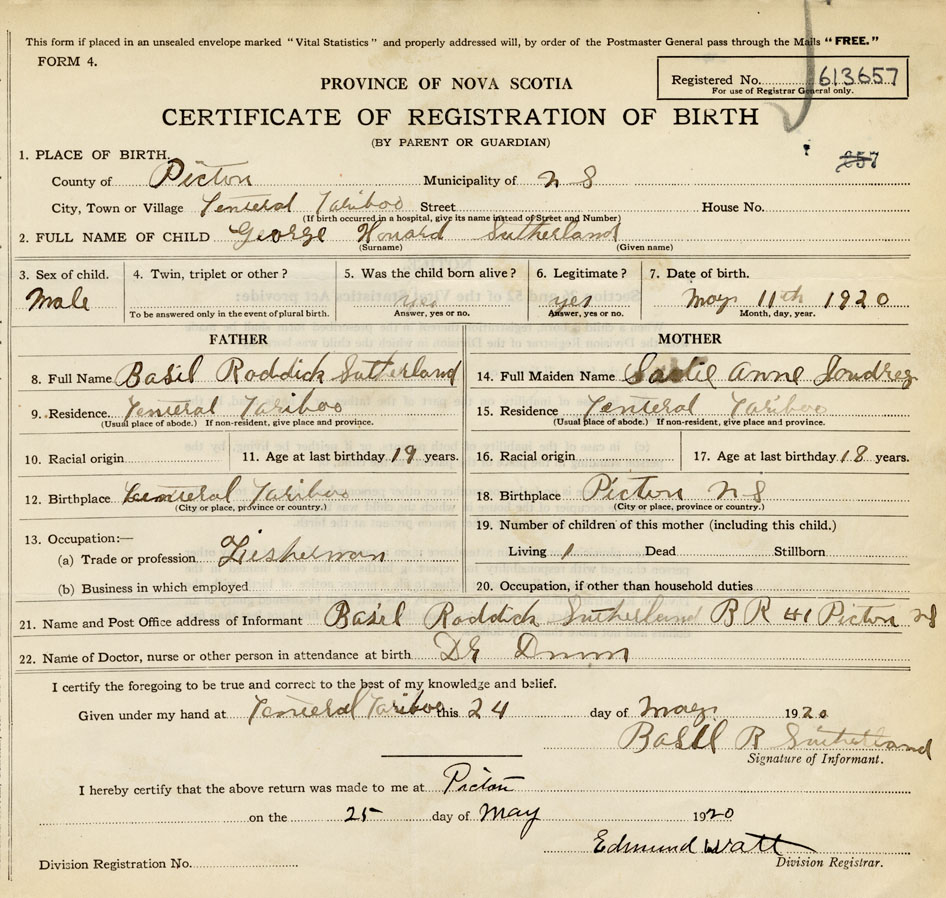 This form if placed in an unsealed envelope marked "Vital Statistics" and properly addressed will, by order of the Postmaster General pass through the Mails "FREE."
FORM 4.
PROVINCE OF NOVA SCOTIA
Registered No. 613657
For use of Registrar General only.
CERTIFICATE OF REGISTRATION OF BIRTH
(BY PARENT OR GUARDIAN)
857
1. PLACE OF BIRTH.
County of Picton Municipality of N S
City, Town or Village Centeral Cariboo Street House No.
(If birth occurred in a hospital, give its name instead of Street and Number)
2. FULL NAME OF CHILD George Howard Sutherland
(Surname) (Given name)
3. Sex of child. 4. Twin, triplet or other? 5. Was the child born alive? 6. Legitimate? 7. Date of birth.
Male yes yes May 11th 1920
To be answered only in the event of plural birth. Answer, yes or no. Answer, yes or no. Month, day, year.
FATHER MOTHER
8. Full Name Basil Roddick Sutherland 14. Full Maiden Name Anne
9. Residence. Centeral Cariboo 15. Residence Centeral Cariboo
(Usual place of abode.) If non-resident, give place and province. (Usual place of abode.) If non-resident, give place and province.
10. Racial origin 11. Age at last birthday 19 years. 16. Racial origin 17. Age at last birthday 18 years.
12. Birthplace Centeral Cariboo 18. Birthplace Picton N S
(City or place, province or country.) (City or place, province or country.)
13. Occupation:— 19. Number of children of this mother (including this child.)
(a) Trade or profession Fisherman Living 1 Dead Stillborn
(b) Business in which employed 20. Occupation, if other than household duties
21. Name and Post Office address of Informant Basil Roddick Sutherland R R #1 Picton NS
22. Name of Doctor, nurse or other person in attendance at birth Dr Dunn
I certify the foregoing to be true and correct to the best of my knowledge and belief.
Given under my hand at Centeral Cariboo this 24 day of May 1920
Basil R Sutherland
Signature of Informant.
I hereby certify that the above return was made to me at Picton
on the 25 day of May 1920
Edmund Watt
Division Registration No. Division Registrar.